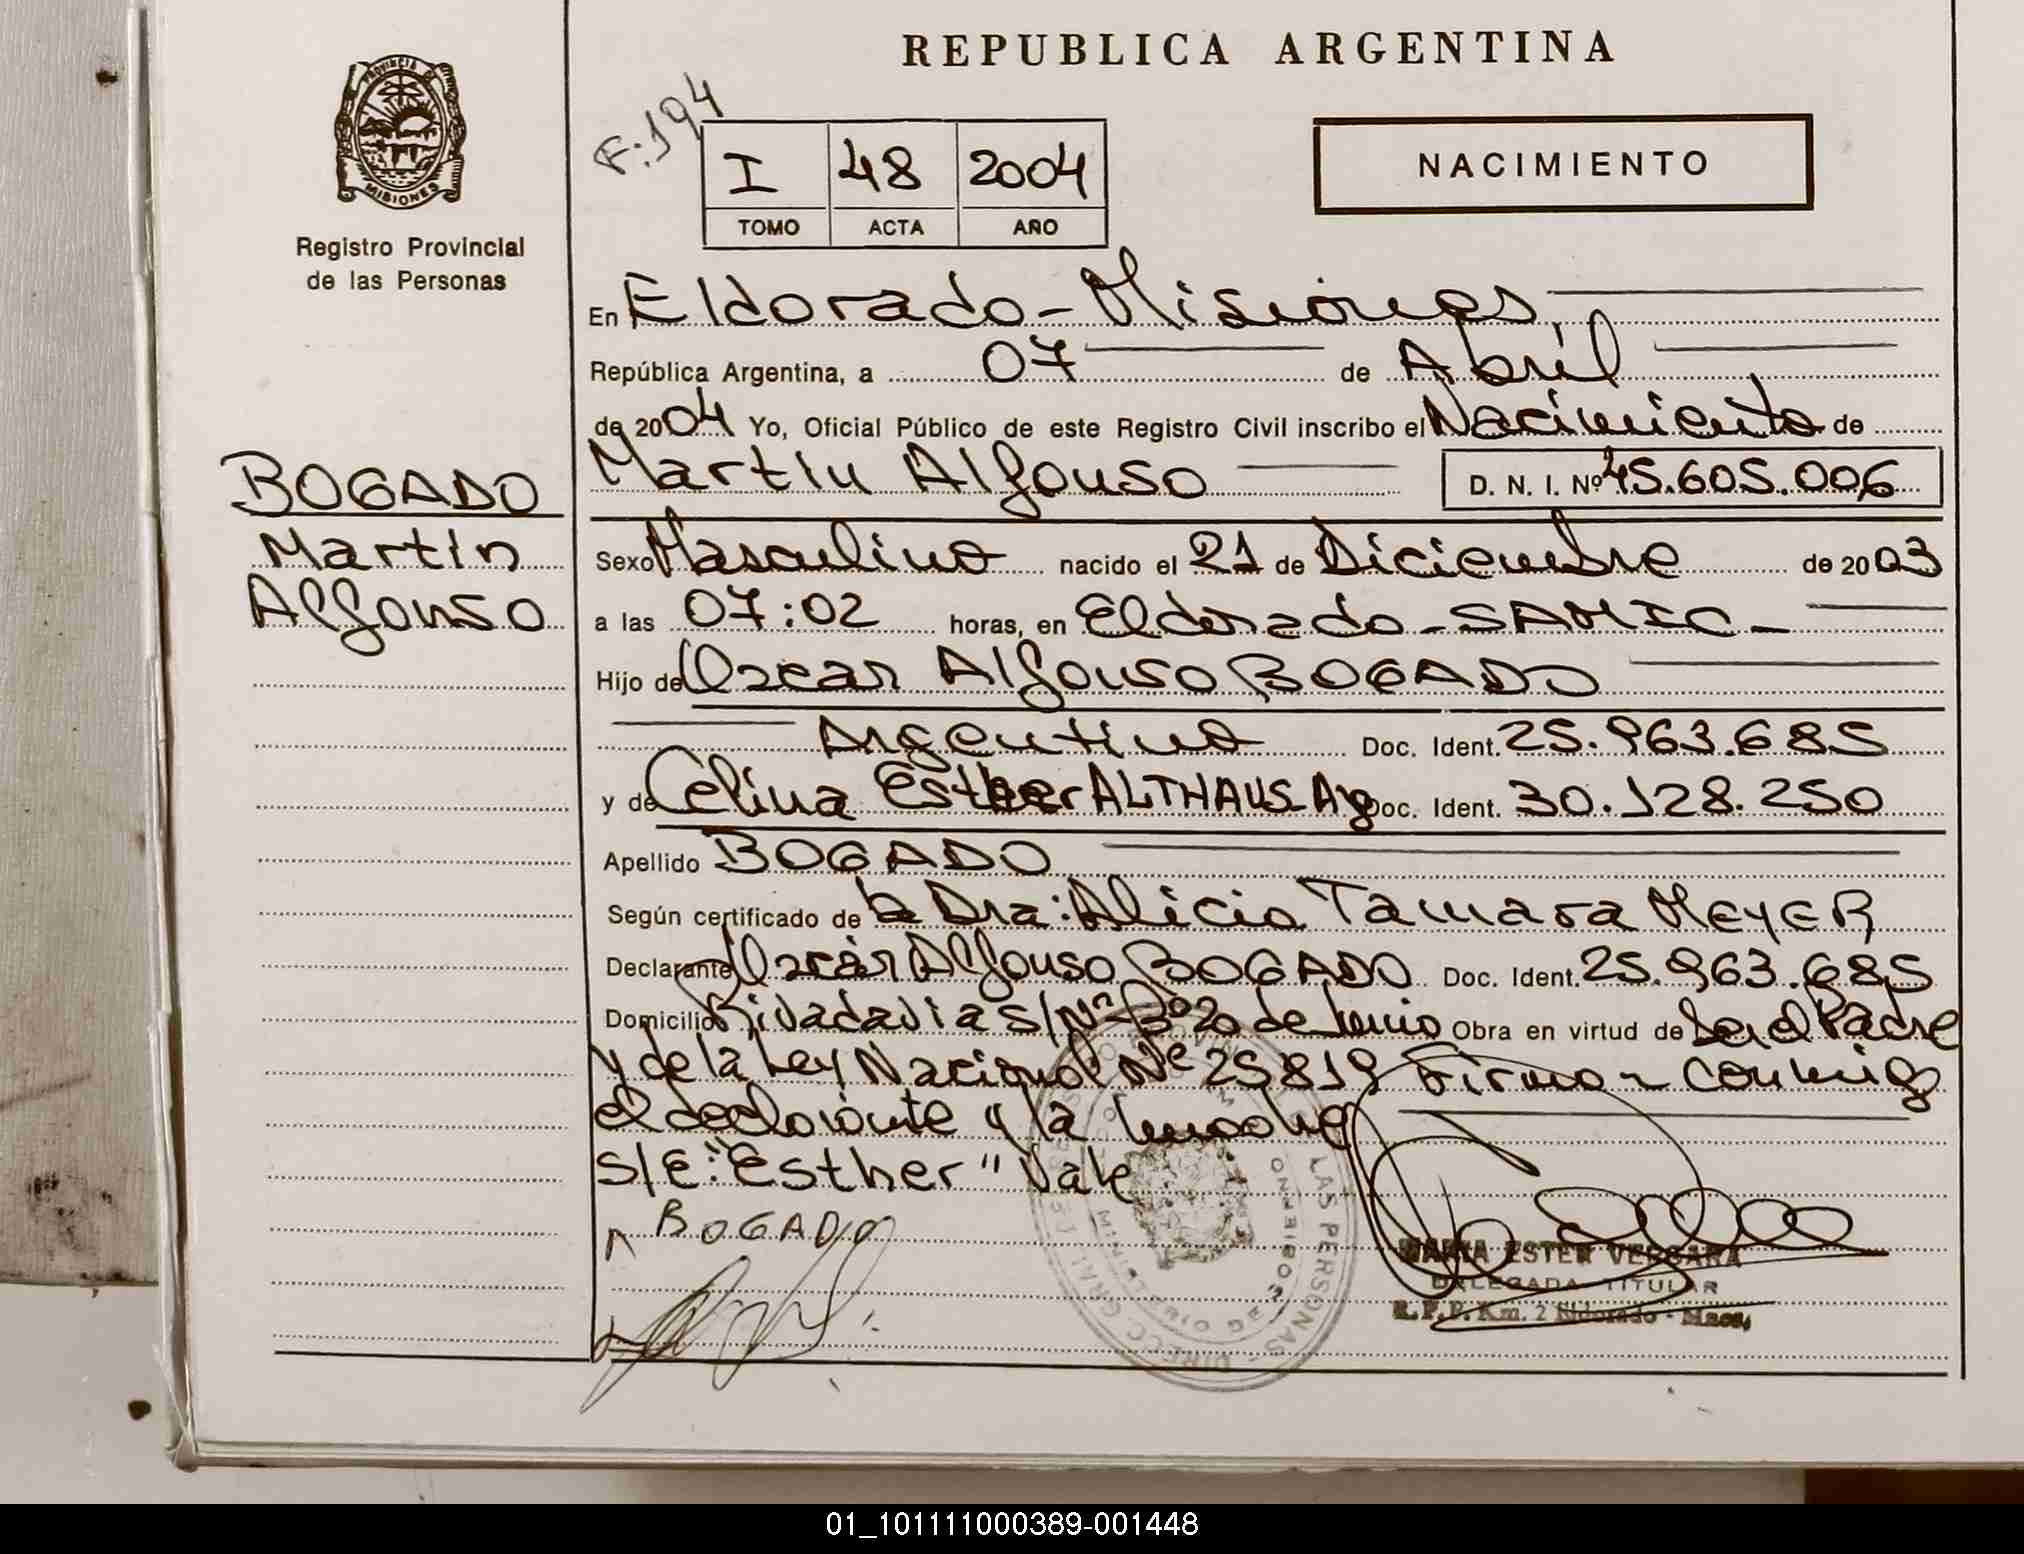 REPUBLICA ARGENTINA
PROVINCIA DE
MISIONES
Registro Provincial
de las Personas
F:194
I 48 2004
TOMO ACTA AÑO
NACIMIENTO
En Eldorado - Misiones,
República Argentina, a 07 de Abril
de 2004 Yo, Oficial Público de este Registro Civil inscribo el Nacimiento de
Martin Alfonso D. N. I. Nº 45.605.006
BOGADO
Martín
Alfonso
Sexo Masculino nacido el 21 de Diciembre de 2003
a las 07:02 horas, en Eldorado - SAMIC -
Hijo de Oscar Alfonso BOGADO
Argentino Doc. Ident. 25.963.685
y de Celina Esther ALTHAUS - Arg Doc. Ident. 30.128.250
Apellido BOGADO
Según certificado de la Dra: Alicia Tamara MEYER
Declarante Oscar Alfonso BOGADO Doc. Ident. 25.963.685
Domicilio Rivadavia S/Nº Bº 20 de Junio Obra en virtud de Ser el Padre
y de la Ley Nacional Nº 25819 Firman conmigo
el declarante y la
S/E: "Esther" Vale
BOGADO
MARIA ESTER VERGARA
DELEGADA TITULAR
R.P.P. Km. 2 Eldorado - Mnes.
LAS PERSONAS - DIRECC. GRAL.
01_101111000389-001448